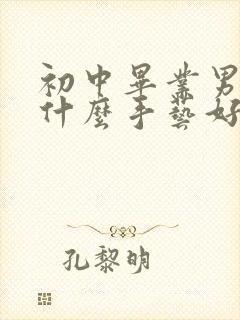 初中畢業男
什麼手藝好
孔黎明